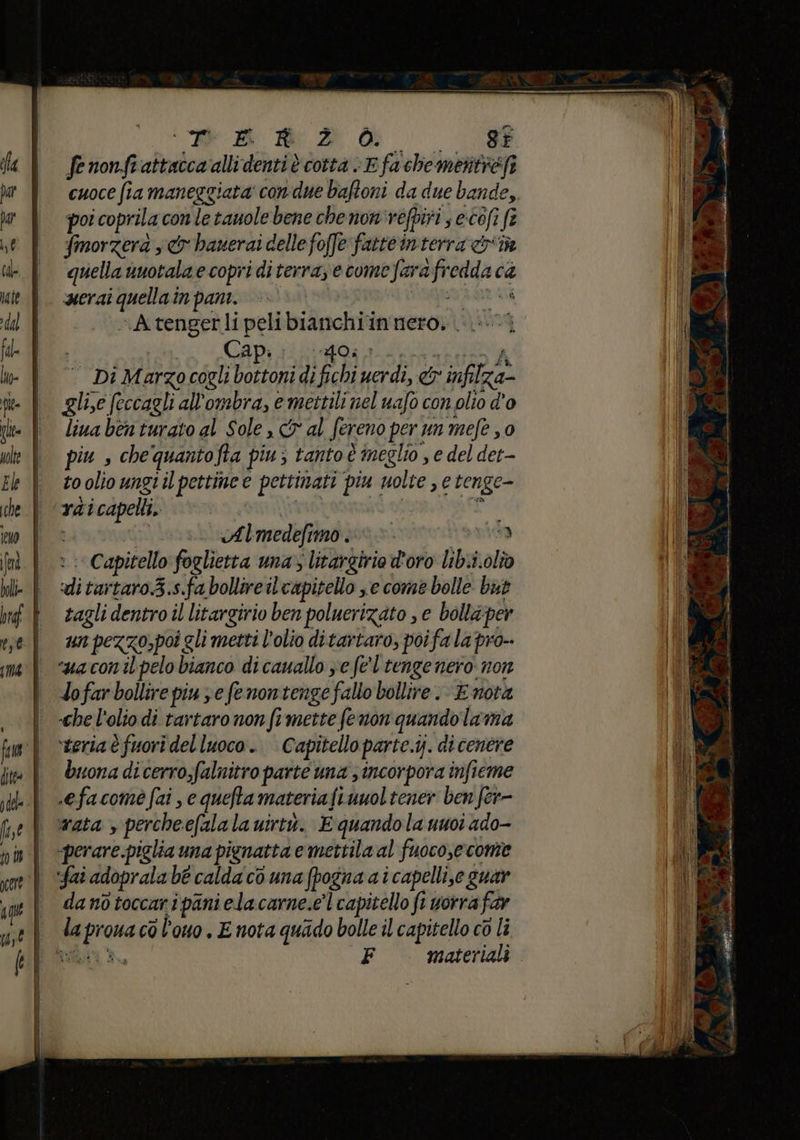 T E R Z O. 81
ſe non ſi attacca alli denti è cotta. E fa che mentre ſi
cuoce ſia maneggiata con due baſtoni da due bande,
poi coprila con le tauole bene che non reſpiri, e coſi ſi
ſmorzerà, & hauerai delle foſſe fatte in terra & in
quella uuotala e copri di terra, e come ſarà fredda ca
uerai quella in pani.
A tenger li peli bianchi in nero.
Cap. 40.
Di Marzo cogli bottoni di fichi uerdi, & infilza-
gli,e ſeccagli all'ombra, e mettili nel uaſo con olio d'o
liua ben turato al Sole, & al ſereno per un meſe, o
piu, che quanto ſta piu; tanto è meglio, e del det-
to olio ungi il pettine e pettinati piu uolte, e tenge-
rài capelli.
Al medeſimo.
Capitello foglietta una; litargirio d'oro lib.i.olio
di tartaro.ʒ.s.fa bollire il capitello, e come bolle but
tagli dentro il litargirio ben poluerizato, e bolla per
un pezzo,poi gli metti l'olio di tartaro, poi fa la pro-
ua con il pelo bianco di cauallo, e ſe'l tenge nero non
lo far bollire piu, e ſe non tenge fallo bollire. E nota
che l'olio di tartaro non ſi mette ſe non quando la ma
teria è fuori del luoco. Capitello parte.ij. di cenere
buona di cerro,ſalnitro parte una, incorpora inſieme
e fa come ſai, e queſta materia ſi uuol tener ben ſer-
rata, perche eſala la uirtù. E quando la uuoi ado-
perare.piglia una pignatta e mettila al fuoco,e come
ſai adoprala bē calda cō una ſpogna a i capelli,e guar
da nō toccar i pāni e la carne.e'l capitello ſi uorra far
la proua cō l'ouo. E nota quādo bolle il capitello cō li
F materiali